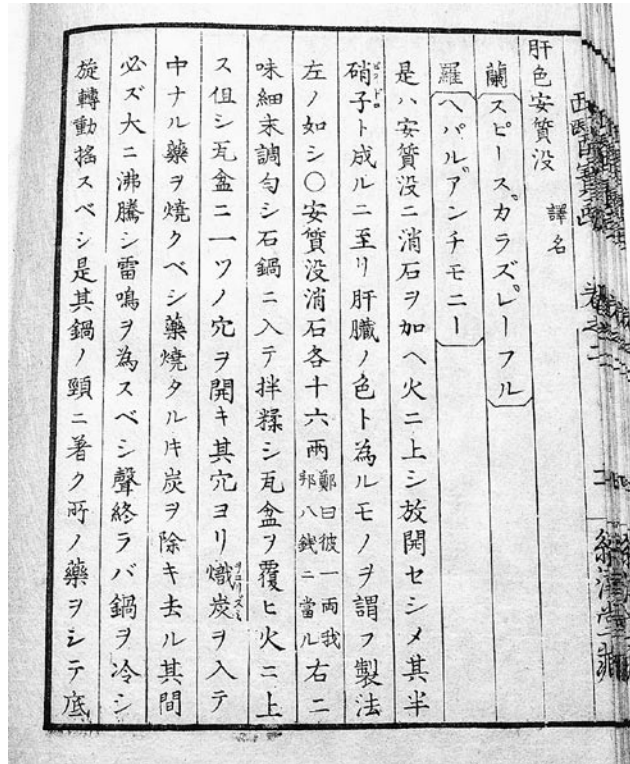 肝色安質没 譯名
蘭 スピースガラズレーフル
羅 ヘパルアンチモニー
是ハ安質没ニ消石ヲ加ヘ火ニ上シ放開セシメ其半
硝子ト成ルニ至リ肝臓ノ色ト為ルモノヲ謂フ製法
左ノ如シ〇安質没消石各十六兩鄭曰彼一兩我邦八錢ニ當ル右二
味細末調勻シ石鍋ニ入テ拌糅シ瓦盆ヲ覆ヒ火ニ上
ス但シ瓦盆ニ一ツノ穴ヲ開キ其穴ヨリ熾炭ヲ入テ
中ナル藥ヲ燒クベシ藥燒タル𪜈炭ヲ除キ去ル其間
必ズ大ニ沸騰シ雷鳴ヲ為スベシ聲終ラバ鍋ヲ冷シ
旋轉動搖スベシ是其鍋ノ頸ニ著ク所ノ藥ヲシテ底